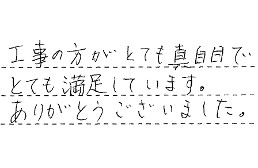 工事の方がとても真面目で
とても満足しています。
ありがとうございました。